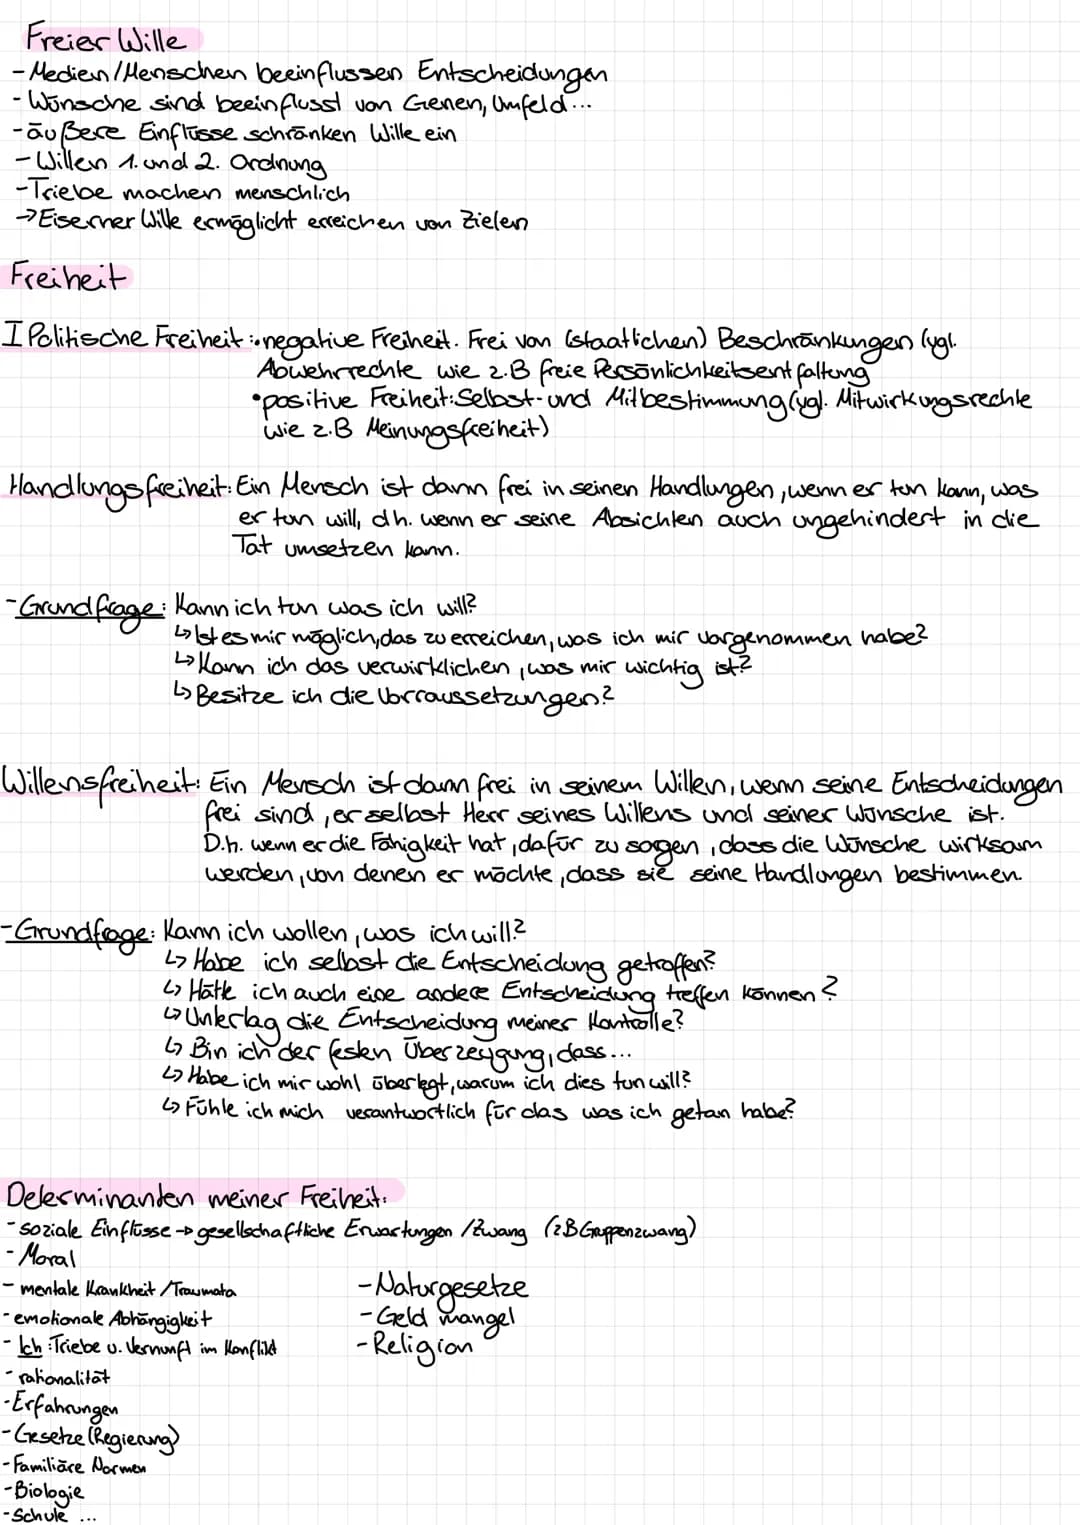 Freier Wille
- Medien/Menschen beeinflussen Entscheidungen
- Wünsche sind beeinflusst von Genen, Umfeld...
- äußere Einflüsse schränken Wille ein
- Willen 1. und 2. Ordnung
- Triebe machen menschlich
→ Eiserner Wille ermöglicht erreichen von Zielen
Freiheit
I Politische Freiheit: • negative Freiheit. Frei von (staatlichen) Beschränkungen (vgl.
Abwehrrechte wie z.B freie Persönlichkeitsentfaltung
• positive Freiheit: Selbst- und Mitbestimmung (vgl. Mitwirkungsrechte
wie z.B Meinungsfreiheit)
Handlungsfreiheit: Ein Mensch ist dann frei in seinen Handlungen, wenn er tun kann, was
er tun will, dh. wenn er seine Absichten auch ungehindert in die
Tat umsetzen kann.
- Grundfrage: Kann ich tun was ich will?
↳ Ist es mir möglich, das zu erreichen, was ich mir vorgenommen habe?
↳ Kann ich das verwirklichen, was mir wichtig ist?
↳ Besitze ich die Vorraussetzungen?
Willensfreiheit: Ein Mensch ist dann frei in seinem Willen, wenn seine Entscheidungen
frei sind, er selbst Herr seines Willens und seiner Wünsche ist.
D.h. wenn er die Fähigkeit hat, dafür zu sorgen, dass die Wünsche wirksam
werden, von denen er möchte, dass sie seine Handlungen bestimmen.
- Grundfrage: Kann ich wollen, was ich will?
↳ Habe ich selbst die Entscheidung getroffen?
↳ Hätte ich auch eine andere Entscheidung treffen können?
↳ Unterlag die Entscheidung meiner Kontrolle?
↳ Bin ich der festen Überzeugung, dass...
↳ Habe ich mir wohl überlegt, warum ich dies tun will?
↳ Fühle ich mich verantwortlich für das was ich getan habe?
Determinanten meiner Freiheit:
- soziale Einflüsse → gesellschaftliche Erwartungen /Zwang (z.B Gruppenzwang)
- Moral
- mentale Krankheit /Traumata
- emotionale Abhängigkeit
- Ich: Triebe u. Vernunft im Konflikt
- rationalität
- Erfahrungen
- Gesetze (Regierung)
- Familiäre Normen
- Biologie
- Schule ...
- Naturgesetze
- Geld mangel
- Religion